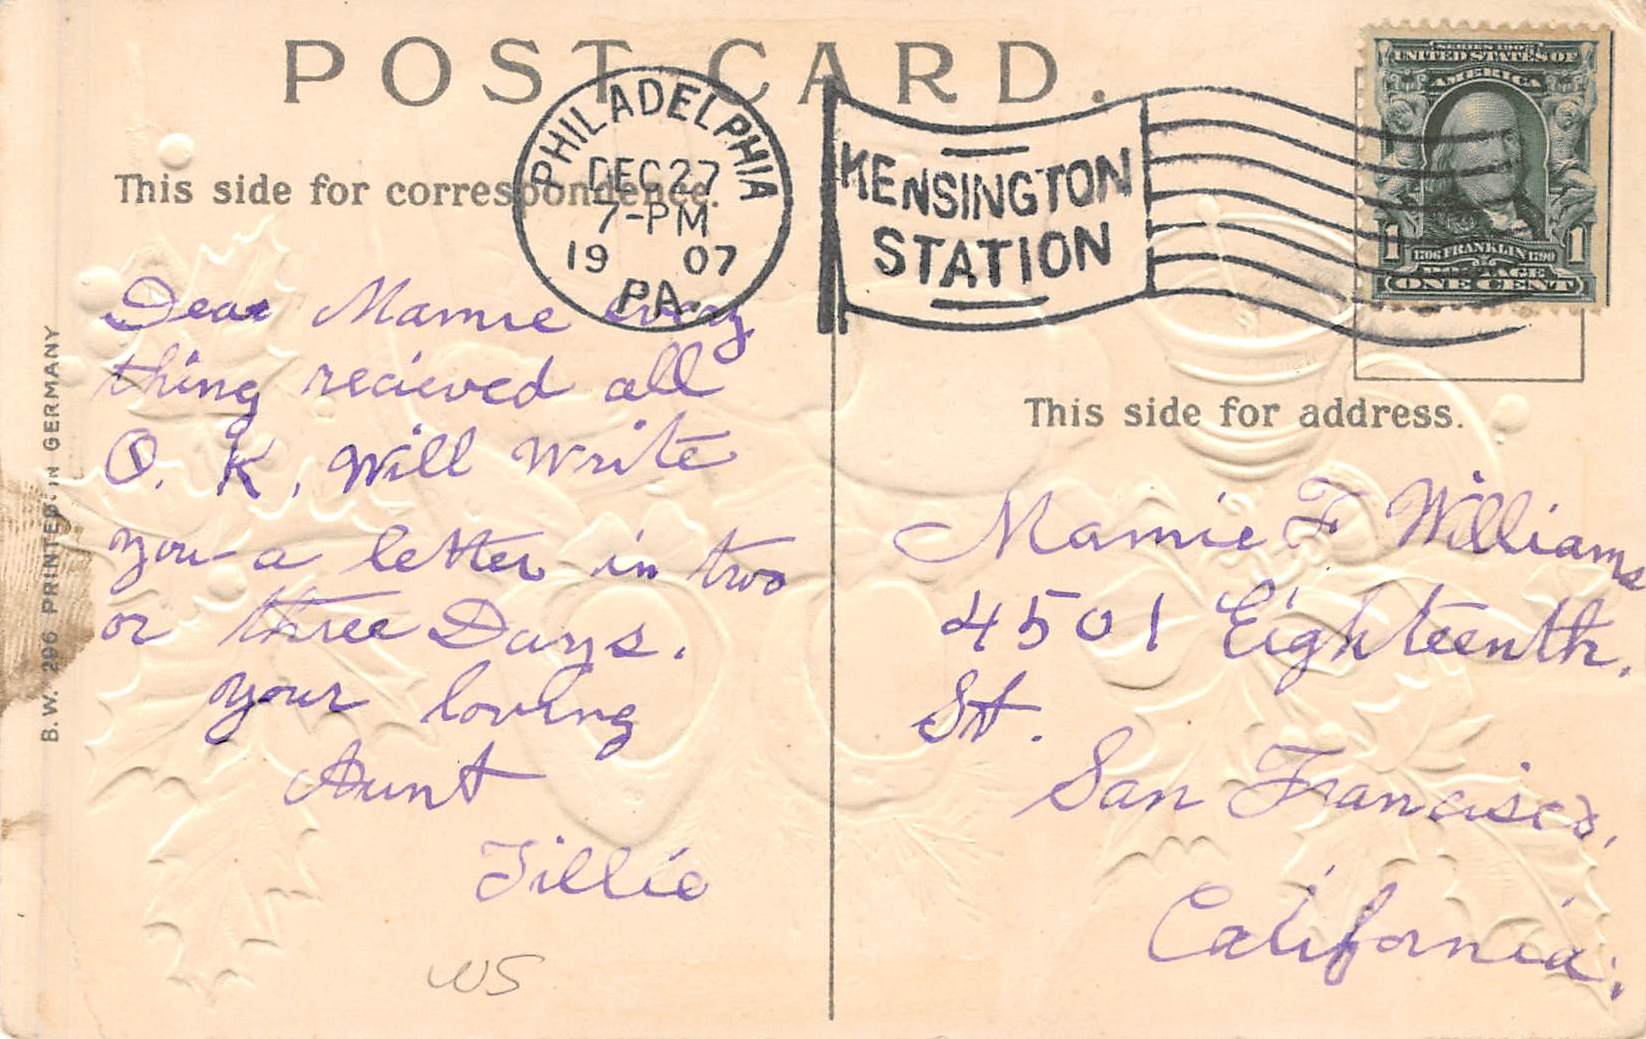 POST CARD.
This side for correspondence.
PHILADELPHIA
DEC 27
7-PM
1907
PA.
KENSINGTON
STATION
SERIES 1902
UNITED STATES OF
AMERICA
1 1706 FRANKLIN 1790 1
POSTAGE
ONE CENT
Dear Mamie every
thing recieved all
O. K, Will Write
you a letter in two
or three Days.
your loving
Aunt
Tillie
WS
B.W. 296 PRINTED IN GERMANY
This side for address.
Mamie F Williams
4501 Eighteenth.
St.
San Francisco,
California,